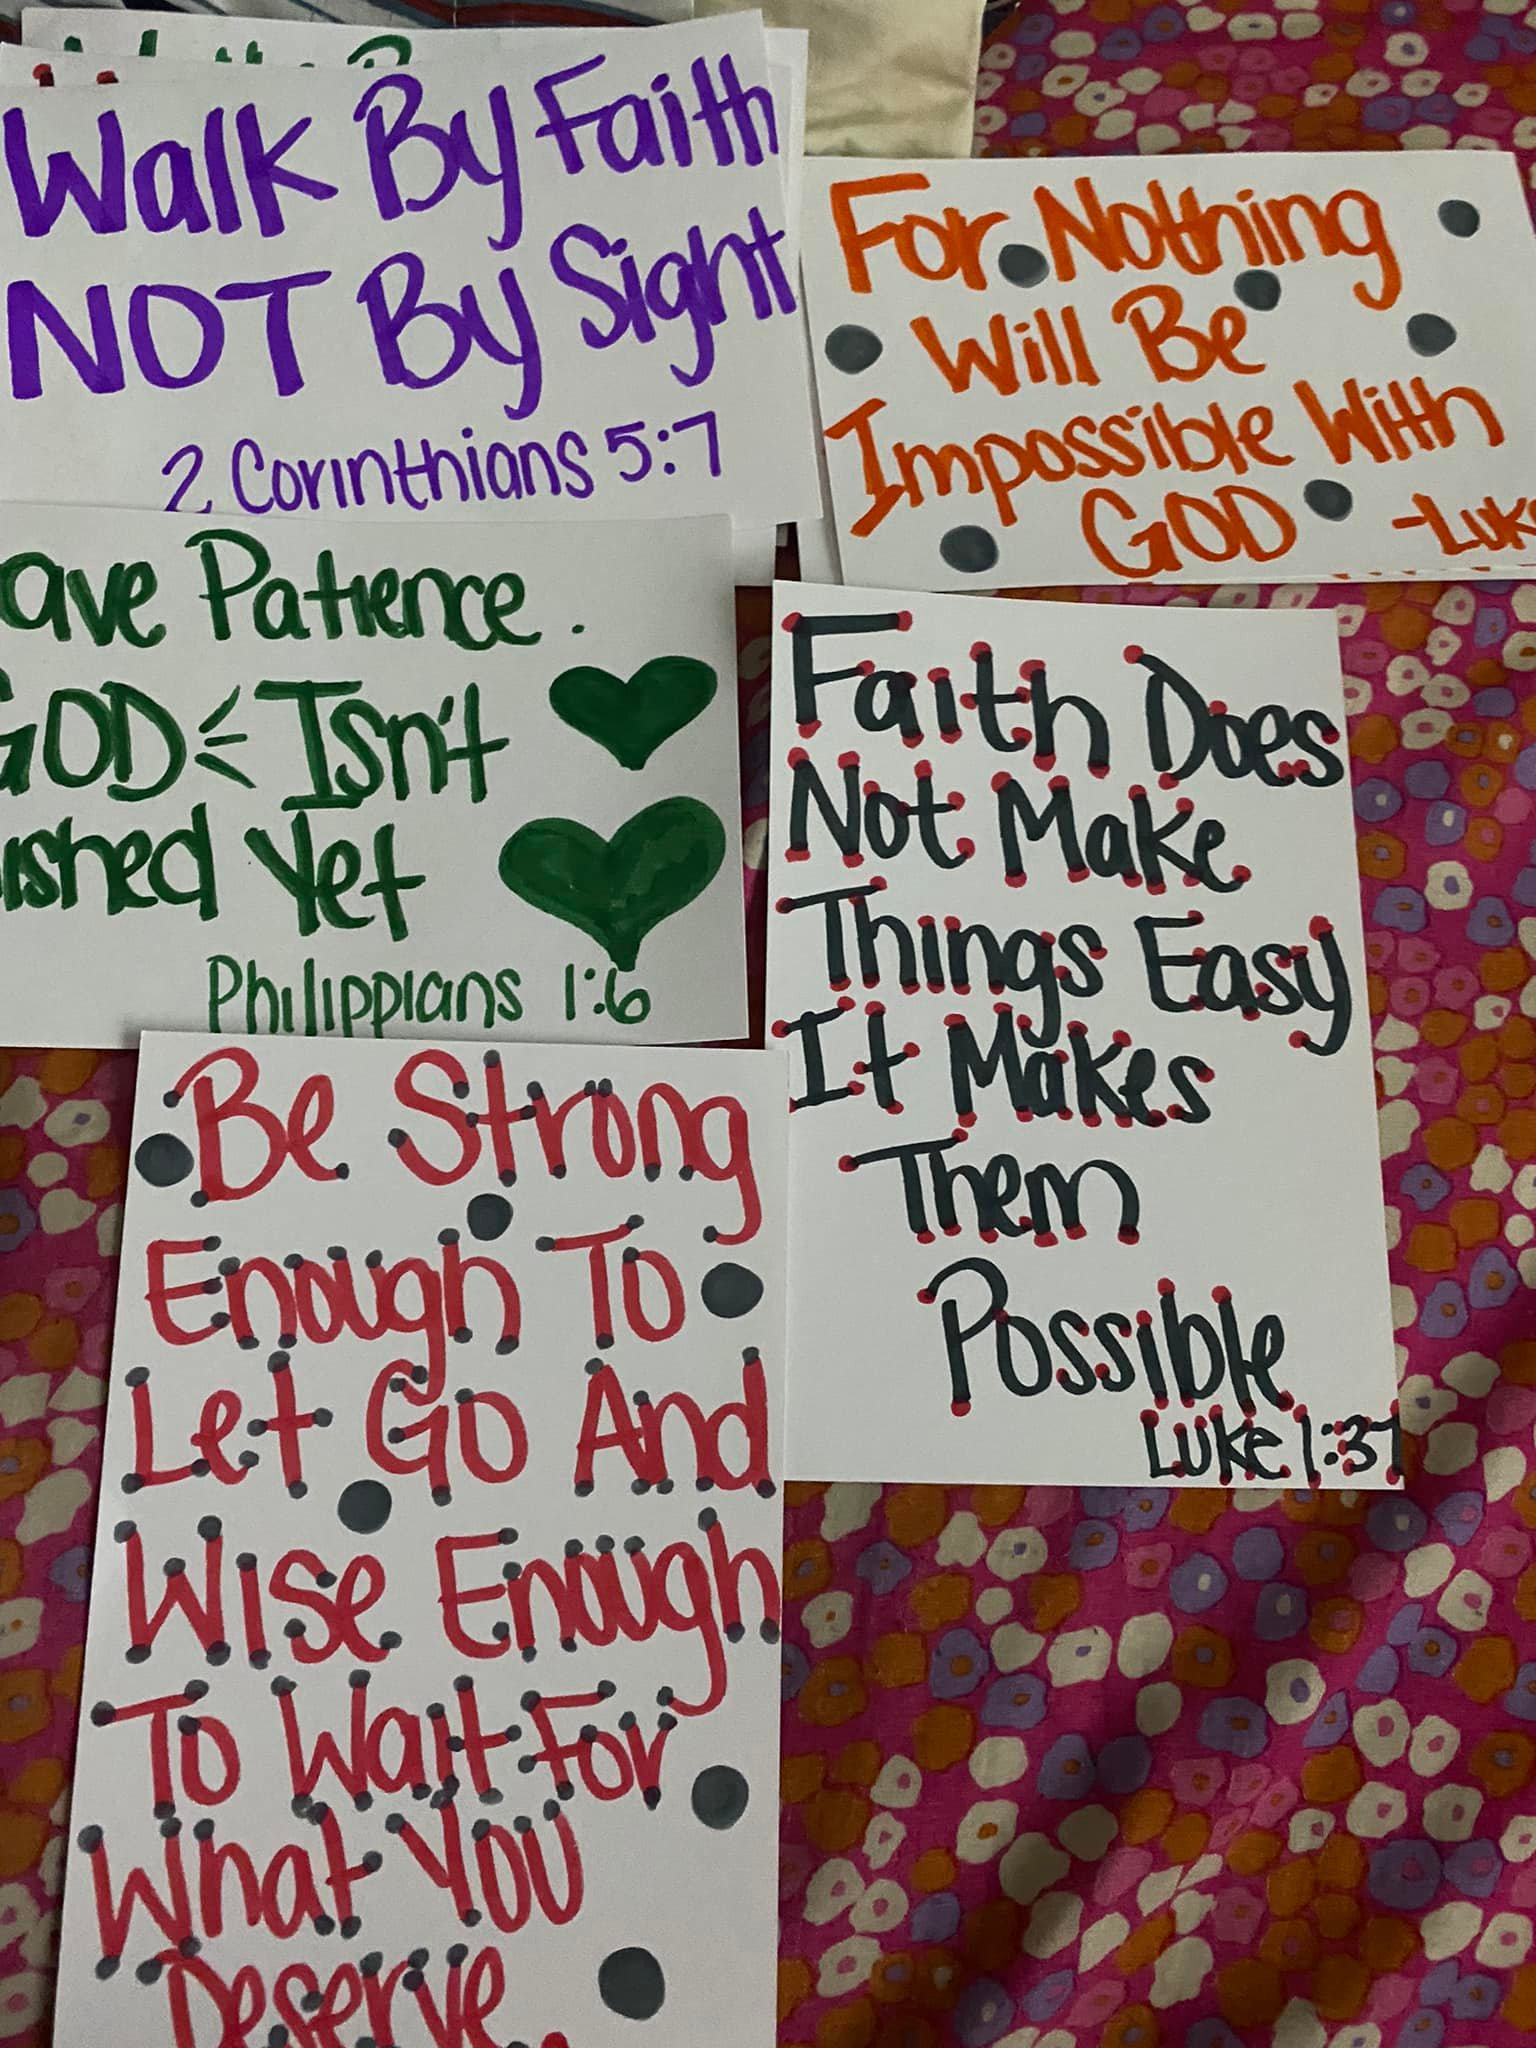 Walk By Faith
NOT By Sight
2 Corinthians 5:7
For Nothing
Will Be
Impossible With
GOD
-Luke
ave Patience.
GOD Isn't
ished Yet
Philippians 1:6
Faith Does
Not Make
Things Easy
It Makes
Them
Possible
Luke 1:37
Be Strong
Enough To
Let Go And
Wise Enough
To Wait For
What You
Deserve.